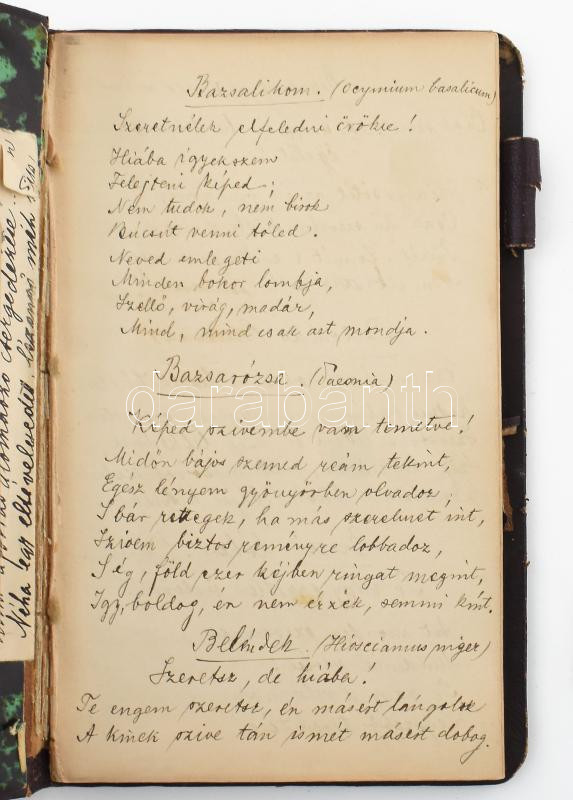 Bazsalikom. (Ocymium basalicum)
Szeretnélek elfeledni örökre!
Hiába igyekszem
Felejteni képed;
Nem tudok, nem birok
Búcsút venni tőled.
Neved emlegeti
Minden bokor lombja,
Szellő, virág, madár,
Mind, mind csak ast mondja.
Bazsarózsa. (Paeonia)
Képed szivembe van temetve!
Midőn bájos szemed reám tekint,
Egész lényem gyönyörben olvadoz,
S bár rettegek, ha más szerelmet int,
Szivem biztos reményre lobbadoz,
S ég, föld ezer kéjben ringat megint,
Igy, boldog, én nem érzek, semmi kínt.
Beléndek. (Hiosciamus niger)
Szeretsz, de hiába!
Te engem szeretsz, én másért lángolok
A kinek szive tán ismét másért dobog.
Néha egy elnevelvedett
darabanth